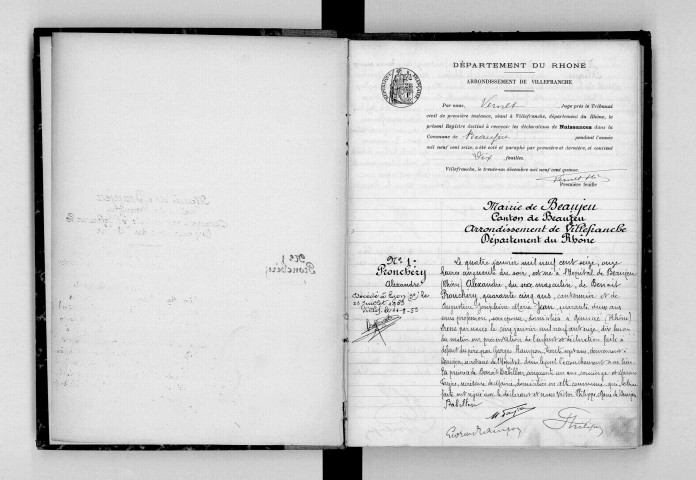 DÉPARTEMENT DU RHONE
ARRONDISSEMENT DE VILLEFRANCHE
Par nous, Vernet, Juge près le Tribunal
civil de première instance, séant à Villefranche, département du Rhône, le
présent Registre destiné à recevoir les déclarations de Naissances dans la
Commune de Beaujeu pendant l'année
mil neuf cent seize, a été coté et paraphé par première et dernière, et contient
Dix feuilles.
Villefranche, le trente-un décembre mil neuf cent quinze.
Première feuille
Mairie de Beaujeu
Canton de Beaujeu
Arrondissement de Villefranche
Département du Rhône
N° 1:
Pronchéry
Alexandre
Décédé à Lyon le
Juillet 1953
Le quatre janvier mil neuf cent seize, onze
heures cinquante du soir, est né à l'Hôpital de Beaujeu
(Rhône) Alexandre, du sexe masculin, de Benoit
Pronchery, quarante cinq ans, cantonnier et de
Augustine Joséphine Marie Jean, quarante deux ans
sans profession, son épouse, domiciliés à (Rhône)
Dressé par nous le cinq janvier mil neuf cent seize, dix heures
du matin sur présentation de l'enfant et déclaration faite à
défaut du père par Georges Rampon, trente sept ans, demeurant à
Beaujeu, de l'Hôpital, dans lequel l'accouchement a eu lieu
En présence de Benoit Babillon, cinquante un ans, concierge et
secrétaire de Mairie, domiciliés en cette commune, qui, lecture
faite ont signé avec le déclarant et nous Philippe, Maire de Beaujeu
Babillon
Georges Rampon
Philippe